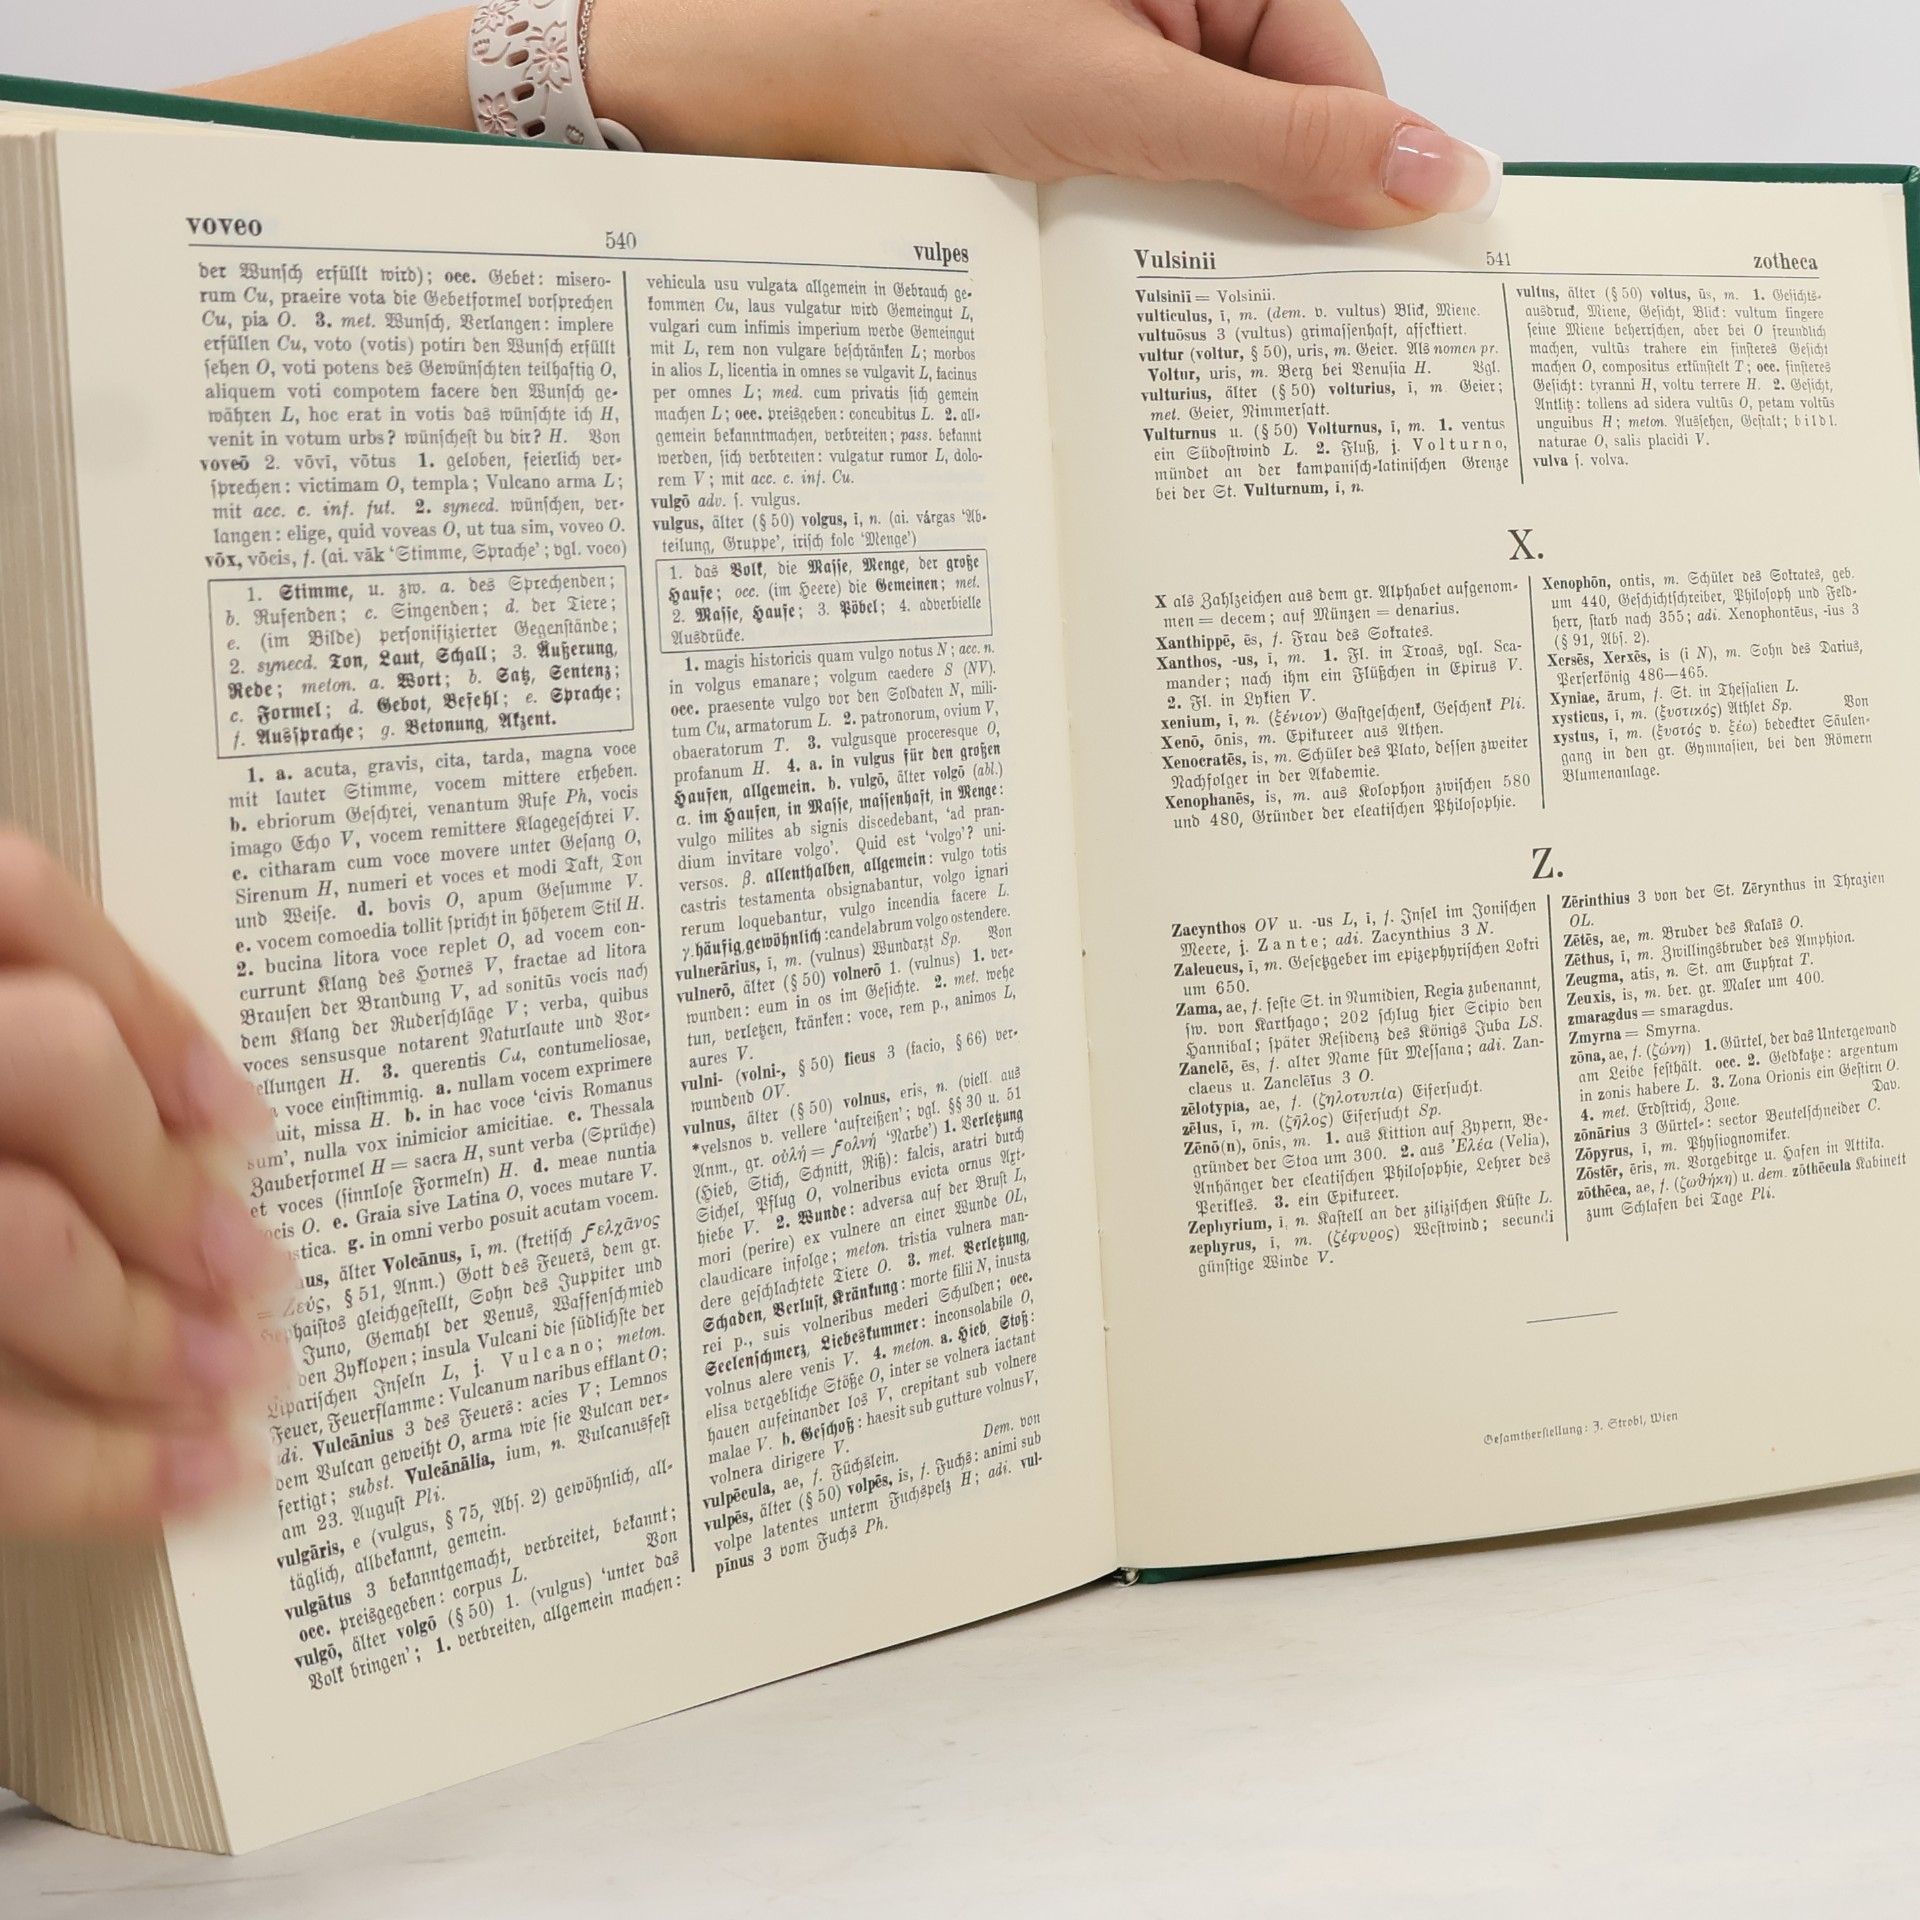 voveo
540
vulpes
der Wunſch erfüllt wird); occ. Gebet: misero-
rum Cu, praeire vota die Gebetformel vorſprechen
Cu, pia O. 3. met. Wunſch, Verlangen: implere
erfüllen Cu, voto (votis) potiri den Wunſch erfüllt
ſehen O, voti potens des Gewünſchten teilhaftig O,
aliquem voti compotem facere den Wunſch ge-
währen L, hoc erat in votis das wünſchte ich H,
venit in votum urbs? wünſcheſt du dir? H. Von
voveō 2. vōvī, vōtus 1. geloben, feierlich ver-
ſprechen: victimam O, templa; Vulcano arma L;
mit acc. c. inf. fut. 2. synecd. wünſchen, ver-
langen: elige, quid voveas O, ut tua sim, voveo O.
vōx, vōcis, f. (ai. vāk 'Stimme, Sprache'; vgl. voco)
1. Stimme, u. zw. a. des Sprechenden;
b. Rufenden; c. Singenden; d. der Tiere;
e. (im Bilde) perſonifizierter Gegenſtände;
2. synecd. Ton, Laut, Schall; 3. Äußerung,
Rede; meton. a. Wort; b. Satz, Sentenz;
c. Formel; d. Gebot, Befehl; e. Sprache;
f. Ausſprache; g. Betonung, Akzent.
1. a. acuta, gravis, cita, tarda, magna voce
mit lauter Stimme, vocem mittere erheben.
b. ebriorum Geſchrei, venantum Rufe Ph, vocis
imago Echo V, vocem remittere Klagegeſchrei V.
c. citharam cum voce movere unter Geſang O,
Sirenum H, numeri et voces et modi Takt, Ton
und Weiſe. d. bovis O, apum Geſumme V.
e. vocem comoedia tollit ſpricht in höherem Stil H.
2. bucina litora voce replet O, ad vocem con-
currunt Klang des Hornes V, fractae ad litora
Brauſen der Brandung V, ad sonitūs vocis nach
dem Klang der Ruderſchläge V; verba, quibus
voces sensusque notarent Naturlaute und Vor-
ellungen H. 3. querentis Cu, contumeliosae,
voce einſtimmig. a. nullam vocem exprimere
uit, missa H. b. in hac voce 'civis Romanus
sum', nulla vox inimicior amicitiae. c. Thessala
Zauberformel H = sacra H, sunt verba (Sprüche)
et voces (ſinnloſe Formeln) H. d. meae nuntia
ocis O. e. Graia sive Latina O, voces mutare V.
stica. g. in omni verbo posuit acutam vocem.
us, älter Volcānus, ī, m. (kretiſch ϝελχᾱνος
= Ζεύς, § 51, Anm.) Gott des Feuers, dem gr.
phaiſtos gleichgeſtellt, Sohn des Juppiter und
Juno, Gemahl der Venus, Waffenſchmied
den Zyklopen; insula Vulcani die ſüdlichſte der
Lipariſchen Inſeln L, j. Vulcano; meton.
Feuer, Feuerflamme: Vulcanum naribus efflant O;
adi. Vulcānius 3 des Feuers: acies V; Lemnos
dem Vulcan geweiht O, arma wie ſie Vulcan ver-
fertigt; subst. Vulcānālia, ium, n. Vulcanusfeſt
am 23. Auguſt Pli.
vulgāris, e (vulgus, § 75, Abſ. 2) gewöhnlich, all-
täglich, allbekannt, gemein.
vulgātus 3 bekanntgemacht, verbreitet, bekannt;
occ. preisgegeben: corpus L. Von
vulgō, älter volgō (§ 50) 1. (vulgus) 'unter das
Volk bringen'; 1. verbreiten, allgemein machen:
vehicula usu vulgata allgemein in Gebrauch ge-
kommen Cu, laus vulgatur wird Gemeingut L,
vulgari cum infimis imperium werde Gemeingut
mit L, rem non vulgare beſchränken L; morbos
in alios L, licentia in omnes se vulgavit L, facinus
per omnes L; med. cum privatis ſich gemein
machen L; occ. preisgeben: concubitus L. 2. all-
gemein bekanntmachen, verbreiten; pass. bekannt
werden, ſich verbreiten: vulgatur rumor L, dolo-
rem V; mit acc. c. inf. Cu.
vulgō adv. ſ. vulgus.
vulgus, älter (§ 50) volgus, ī, n. (ai. várgas 'Ab-
teilung, Gruppe', iriſch folc 'Menge')
1. das Volk, die Maſſe, Menge, der große
Haufe; occ. (im Heere) die Gemeinen; met.
2. Maſſe, Haufe; 3. Pöbel; 4. adverbielle
Ausdrücke.
1. magis historicis quam vulgo notus N; acc. n.
in volgus emanare; volgum caedere S (NV).
occ. praesente vulgo vor den Soldaten N, mili-
tum Cu, armatorum L. 2. patronorum, ovium V,
obaeratorum T. 3. vulgusque proceresque O,
profanum H. 4. a. in vulgus für den großen
Haufen, allgemein. b. vulgō, älter volgō (abl.)
α. im Haufen, in Maſſe, maſſenhaft, in Menge:
vulgo milites ab signis discedebant, 'ad pran-
dium invitare volgo'. Quid est 'volgo'? uni-
versos. β. allenthalben, allgemein: vulgo totis
castris testamenta obsignabantur, volgo ignari
rerum loquebantur, vulgo incendia facere L.
γ. häufig, gewöhnlich: candelabrum volgo ostendere.
vulnerārius, ī, m. (vulnus) Wundarzt Sp. Von
vulnerō, älter (§ 50) volnerō 1. (vulnus) 1. ver-
wunden: eum in os im Geſichte. 2. met. wehe
tun, verletzen, kränken: voce, rem p., animos L,
aures V.
vulni- (volni-, § 50) ficus 3 (facio, § 66) ver-
wundend OV.
vulnus, älter (§ 50) volnus, eris, n. (viell. aus
*velsnos v. vellere 'aufreißen'; vgl. §§ 30 u. 51
Anm., gr. οὐλή = ϝολνή 'Narbe') 1. Verletzung
(Hieb, Stich, Schnitt, Riß): falcis, aratri durch
Sichel, Pflug O, volneribus evicta ornus Axt-
hiebe V. 2. Wunde: adversa auf der Bruſt L,
mori (perire) ex vulnere an einer Wunde OL,
claudicare infolge; meton. tristia vulnera man-
dere geſchlachtete Tiere O. 3. met. Verletzung,
Schaden, Verluſt, Kränkung: morte filii N, inusta
rei p., suis volneribus mederi Schulden; occ.
Seelenſchmerz, Liebeskummer: inconsolabile O,
volnus alere venis V. 4. meton. a. Hieb, Stoß:
elisa vergebliche Stöße O, inter se volnera iactant
hauen aufeinander los V, crepitant sub volnere
malae V. b. Geſchoß: haesit sub gutture volnus V,
volnera dirigere V. Dem. von
vulpēcula, ae, f. Füchslein.
vulpēs, älter (§ 50) volpēs, is, f. Fuchs: animi sub
volpe latentes unterm Fuchspelz H; adi. vul-
pīnus 3 vom Fuchs Ph.
Vulsinii
541
zotheca
Vulsiniī = Volsinii.
vulticulus, ī, m. (dem. v. vultus) Blick, Miene.
vultuōsus 3 (vultus) grimaſſenhaft, affektiert.
vultur (voltur, § 50), uris, m. Geier. Als nomen pr.
Voltur, uris, m. Berg bei Venuſia H. Vgl.
vulturius, älter (§ 50) volturius, ī, m Geier;
met. Geier, Nimmerſatt.
Vulturnus u. (§ 50) Volturnus, ī, m. 1. ventus
ein Südoſtwind L. 2. Fluß, j. Volturno,
mündet an der kampaniſch-latiniſchen Grenze
bei der St. Vulturnum, ī, n.
vultus, älter (§ 50) voltus, ūs, m. 1. Geſichts-
ausdruck, Miene, Geſicht, Blick: vultum fingere
ſeine Miene beherrſchen, aber bei O freundlich
machen, vultūs trahere ein finſteres Geſicht
machen O, compositus erkünſtelt T; occ. finſteres
Geſicht: tyranni H, voltu terrere H. 2. Geſicht,
Antlitz: tollens ad sidera vultūs O, petam voltūs
unguibus H; meton. Ausſehen, Geſtalt; bildl.
naturae O, salis placidi V.
vulva ſ. volva.
X.
X als Zahlzeichen aus dem gr. Alphabet aufgenom-
men = decem; auf Münzen = denarius.
Xanthippē, ēs, f. Frau des Sokrates.
Xanthos, -us, ī, m. 1. Fl. in Troas, vgl. Sca-
mander; nach ihm ein Flüßchen in Epirus V.
2. Fl. in Lykien V.
xenium, ī, n. (ξένιον) Gaſtgeſchenk, Geſchenk Pli.
Xenō, ōnis, m. Epikureer aus Athen.
Xenocratēs, is, m. Schüler des Plato, deſſen zweiter
Nachfolger in der Akademie.
Xenophanēs, is, m. aus Kolophon zwiſchen 580
und 480, Gründer der eleatiſchen Philoſophie.
Xenophōn, ontis, m. Schüler des Sokrates, geb.
um 440, Geſchichtſchreiber, Philoſoph und Feld-
herr, ſtarb nach 355; adi. Xenophontēus, -ius 3
(§ 91, Abſ. 2).
Xersēs, Xerxēs, is (i N), m. Sohn des Darius,
Perſerkönig 486—465.
Xyniae, ārum, f. St. in Theſſalien L.
xysticus, ī, m. (ξυστικός) Athlet Sp. Von
xystus, ī, m. (ξυστός v. ξέω) bedeckter Säulen-
gang in den gr. Gymnaſien, bei den Römern
Blumenanlage.
Z.
Zacynthos OV u. -us L, ī, f. Inſel im Joniſchen
Meere, j. Zante; adi. Zacynthius 3 N.
Zaleucus, ī, m. Geſetzgeber im epizephyriſchen Lokri
um 650.
Zama, ae, f. feſte St. in Numidien, Regia zubenannt,
ſw. von Karthago; 202 ſchlug hier Scipio den
Hannibal; ſpäter Reſidenz des Königs Juba LS.
Zanclē, ēs, f. alter Name für Meſſana; adi. Zan-
claeus u. Zanclēïus 3 O.
zēlotypia, ae, f. (ζηλοτυπία) Eiferſucht.
zēlus, ī, m. (ζῆλος) Eiferſucht Sp.
Zēnō(n), ōnis, m. 1. aus Kittion auf Zypern, Be-
gründer der Stoa um 300. 2. aus Ἐλέα (Velia),
Anhänger der eleatiſchen Philoſophie, Lehrer des
Perikles. 3. ein Epikureer.
Zephyrium, ī, n. Kaſtell an der ziliziſchen Küſte L.
zephyrus, ī, m. (ζέφυρος) Weſtwind; secundi
günſtige Winde V.
Zērinthius 3 von der St. Zērynthus in Thrazien
OL.
Zētēs, ae, m. Bruder des Kalaïs O.
Zēthus, ī, m. Zwillingsbruder des Amphion.
Zeugma, atis, n. St. am Euphrat T.
Zeuxis, is, m. ber. gr. Maler um 400.
zmaragdus = smaragdus.
Zmyrna = Smyrna.
zōna, ae, f. (ζώνη) 1. Gürtel, der das Untergewand
am Leibe feſthält. occ. 2. Geldkatze: argentum
in zonis habere L. 3. Zona Orionis ein Geſtirn O.
4. met. Erdſtrich, Zone. Dav.
zōnārius 3 Gürtel-: sector Beutelſchneider C.
Zōpyrus, ī, m. Phyſiognomiker.
Zōstēr, ēris, m. Vorgebirge u. Hafen in Attika.
zōthēca, ae, f. (ζωθήκη) u. dem. zōthēcula Kabinett
zum Schlafen bei Tage Pli.
Geſamtherſtellung: J. Strobl, Wien